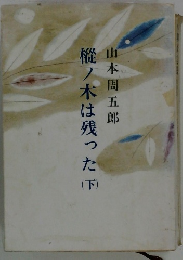 山本周五郎
樅ノ木は残った
(下)